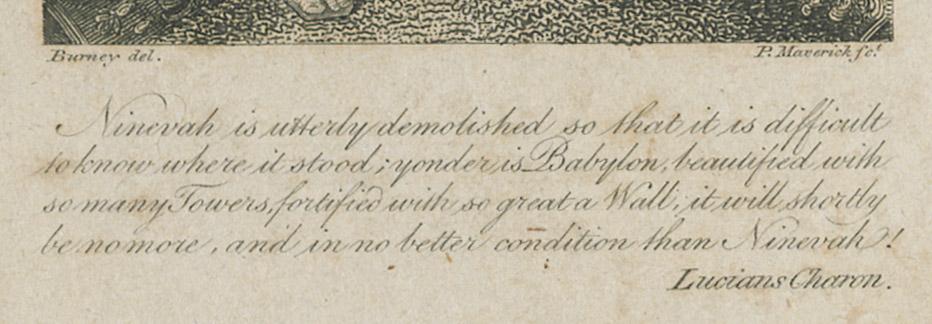 Burney del. P. Maverick sc.t
Ninevah is utterly demolished so that it is difficult
to know where it stood; yonder is Babylon, beautified with
so many Towers, fortified with so great a Wall; it will shortly
be no more, and in no better condition than Ninevah!
Lucians Charon.